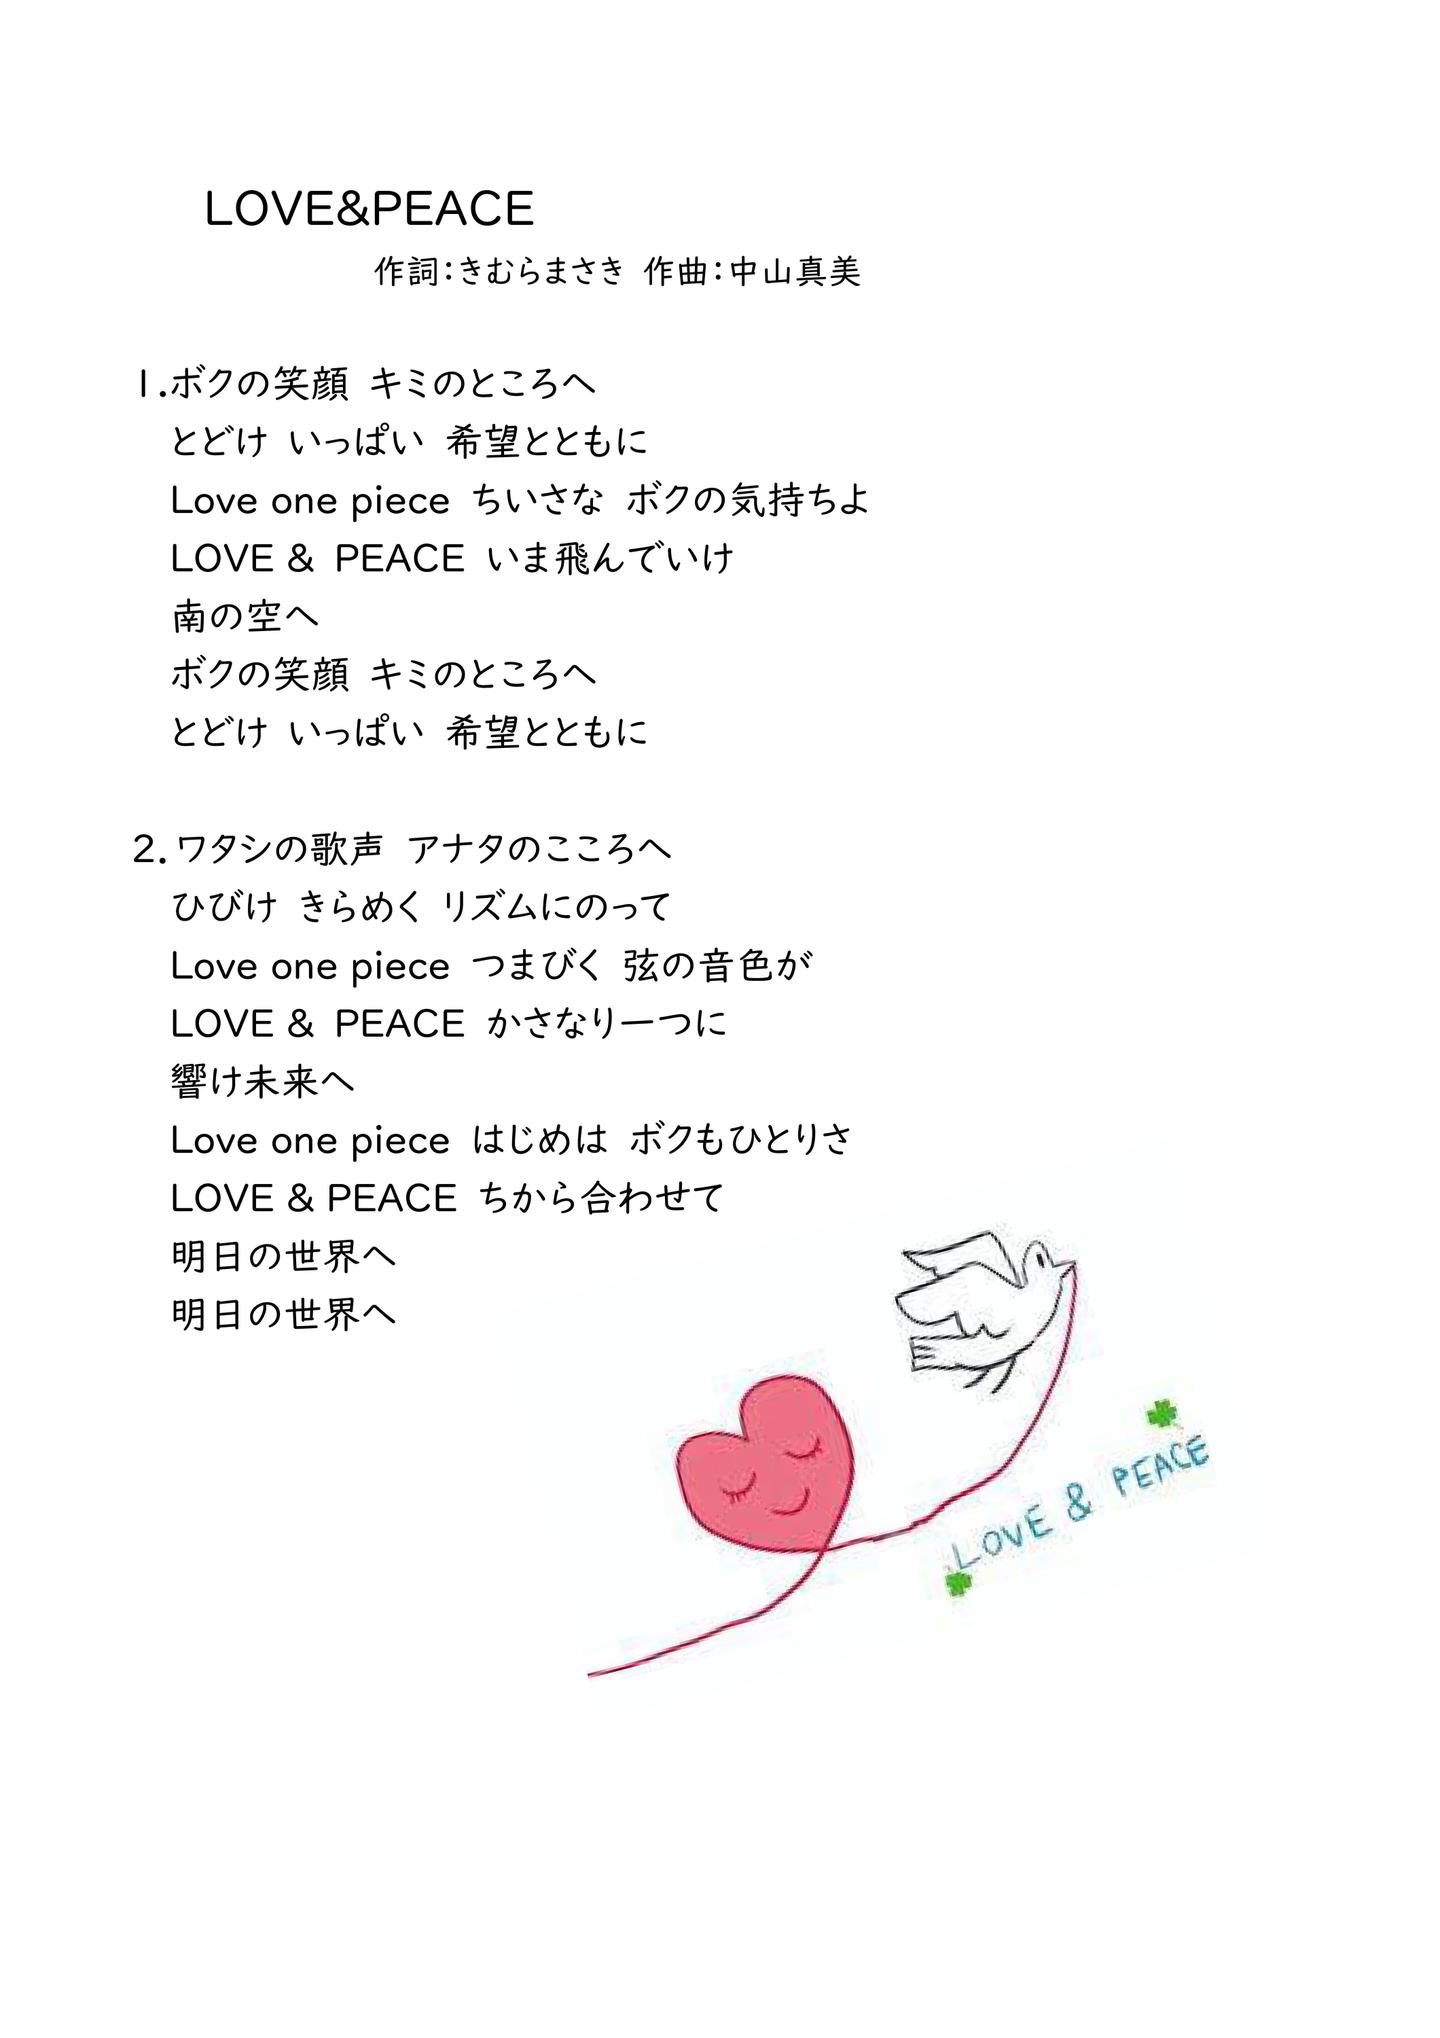 LOVE&PEACE
作詞：きむらまさき 作曲：中山真美
1.ボクの笑顔 キミのところへ
とどけ いっぱい 希望とともに
Love one piece ちいさな ボクの気持ちよ
LOVE & PEACE いま飛んでいけ
南の空へ
ボクの笑顔 キミのところへ
とどけ いっぱい 希望とともに
2.ワタシの歌声 アナタのこころへ
ひびけ きらめく リズムにのって
Love one piece つまびく 弦の音色が
LOVE & PEACE かさなり一つに
響け未来へ
Love one piece はじめは ボクもひとりさ
LOVE & PEACE ちから合わせて
明日の世界へ
明日の世界へ
LOVE & PEACE